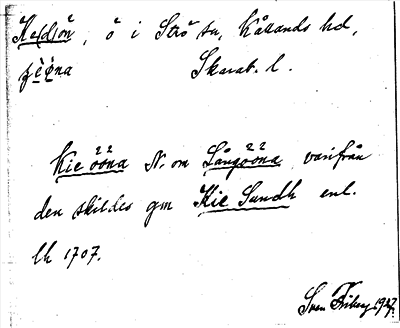 Ke(d)ön, ö i Strö sn, Kållands hd,
Skarab. l.
Kie ööna N. om Långööna varifrån
den skildes gm Kie Sundh enl.
lk 1707.
Sven Friberg 1927.